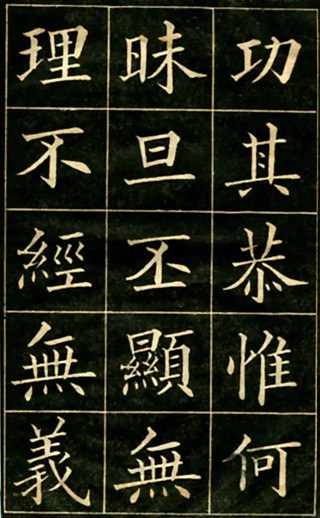 功其恭惟何
昧旦丕顯無
理不經無義